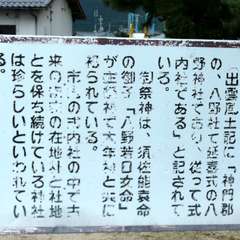 「出雲風土記に「神門郡
の、八野社で延喜式の八
野神社であり、従って式
内社である」と記されて
いる。
御祭神は、須佐能袁命
の御子「八野若日女命」
が 大年神と共に
祀られている。
市内の式内社の中で古
来の 在地社と社地
とを保ち続けている神社
は珍らしいといわれてい
る。